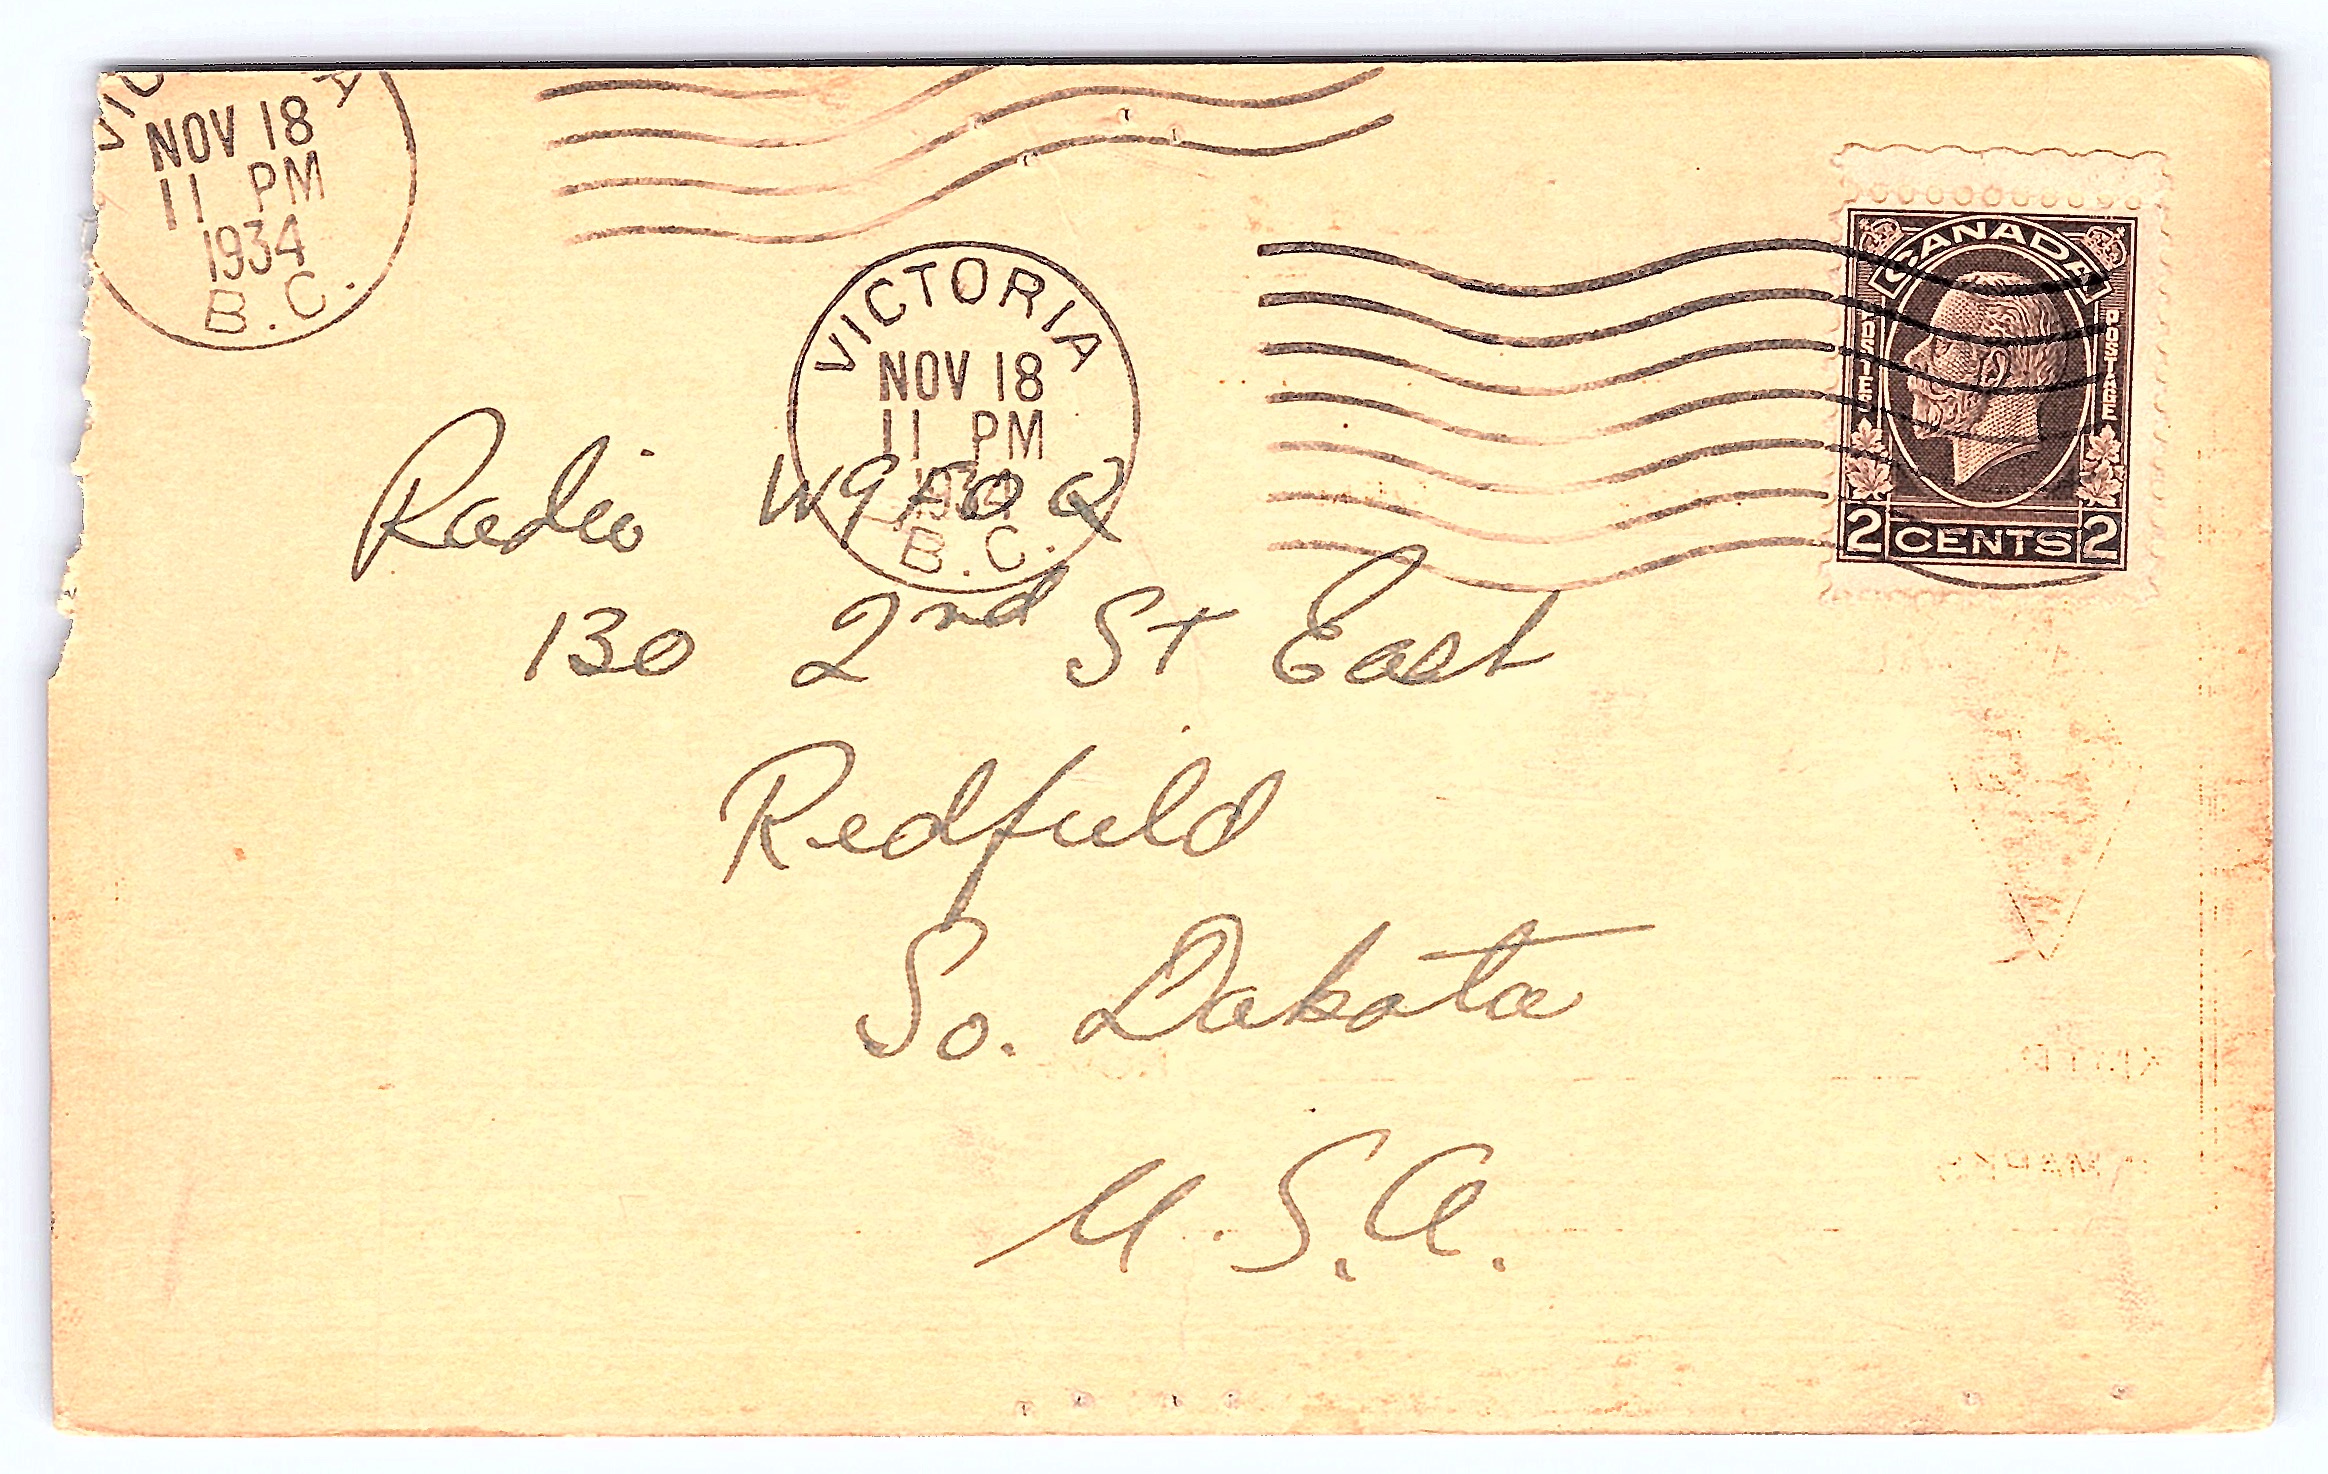 NOV 18
11 PM
1934
B.C.
VICTORIA
NOV 18
11 PM
1934
B.C.
CANADA
POSTES
POSTAGE
2 CENTS 2
Radio W9FOQ
130 2nd St East
Redfield
So. Dakota
U.S.A.